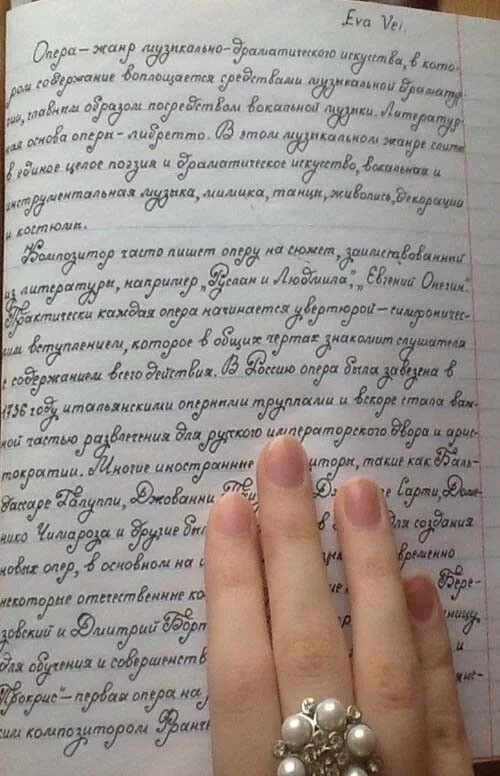 Eva Vei.
Опера – жанр музыкально-драматического искусства, в кото-
ром содержание воплощается средствами музыкальной драматур-
гии, главным образом посредством вокальной музыки. Литератур-
ная основа оперы – либретто. В этом музыкальном жанре слиты
в единое целое поэзия и драматическое искусство, вокальная и
инструментальная музыка, мимика, танцы, живопись, декорации
и костюмы.
Композитор часто пишет оперу на сюжет, заимствованный
из литературы, например „Руслан и Людмила", „Евгений Онегин".
Практически каждая опера начинается увертюрой – симфоничес-
ким вступлением, которое в общих чертах знакомит слушателя
с содержанием всего действия. В Россию опера была завезена в
1736 году итальянскими оперными труппами и вскоре стала важ-
ной частью развлечения для русского императорского двора и арис-
тократии. Многие иностранные
торы, такие как Баль-
дассаре Галуппи, Джованни
Сарти, Доме-
нико Чимароза и другие
для создания
новых опер, в основном на
временно
некоторые отечественные
Бере-
зовский и Дмитрий
для обучения и
и
Прокрис" – первая опера на
ким композитором